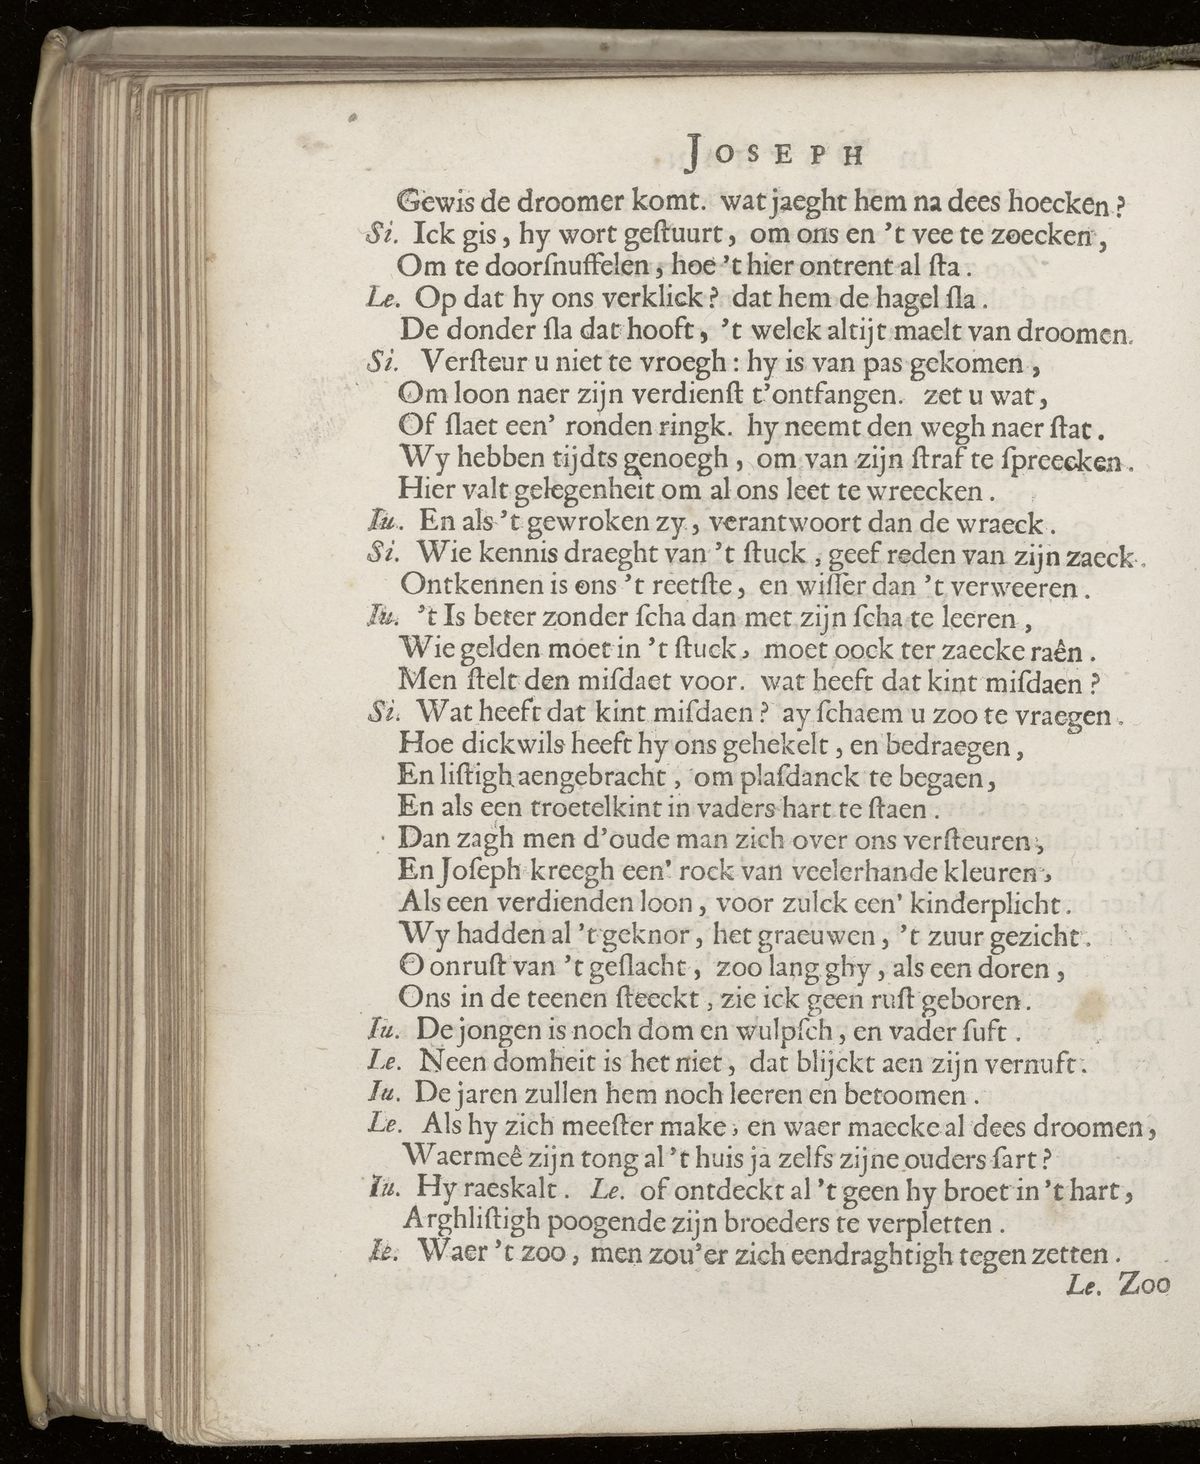 JOSEPH
Gewis de droomer komt. wat jaeght hem na dees hoecken?
Si. Ick gis, hy wort geſtuurt, om ons en 't vee te zoecken,
Om te doorſnuffelen, hoe 't hier ontrent al ſta.
Le. Op dat hy ons verklick? dat hem de hagel ſla.
De donder ſla dat hooft, 't welck altijt maelt van droomen.
Si. Verſteur u niet te vroegh: hy is van pas gekomen,
Om loon naer zijn verdienſt t'ontfangen. zet u wat,
Of ſlaet een' ronden ringk. hy neemt den wegh naer ſtat.
Wy hebben tijdts genoegh, om van zijn ſtraf te ſpreecken.
Hier valt gelegenheit om al ons leet te wreecken.
Iu. En als 't gewroken zy, verantwoort dan de wraeck.
Si. Wie kennis draeght van 't ſtuck, geef reden van zijn zaeck.
Ontkennen is ons 't reetſte, en wiſſer dan 't verweeren.
Iu. 't Is beter zonder ſcha dan met zijn ſcha te leeren,
Wie gelden moet in 't ſtuck, moet oock ter zaecke raên.
Men ſtelt den miſdaet voor. wat heeft dat kint miſdaen?
Si. Wat heeft dat kint miſdaen? ay ſchaem u zoo te vraegen.
Hoe dickwils heeft hy ons gehekelt, en bedraegen,
En liſtigh aengebracht, om plaſdanck te begaen,
En als een troetelkint in vaders hart te ſtaen.
Dan zagh men d'oude man zich over ons verſteuren,
En Joſeph kreegh een' rock van veelerhande kleuren,
Als een verdienden loon, voor zulck een' kinderplicht.
Wy hadden al 't geknor, het graeuwen, 't zuur gezicht.
O onruſt van 't geſlacht, zoo lang ghy, als een doren,
Ons in de teenen ſteeckt, zie ick geen ruſt geboren.
Iu. De jongen is noch dom en wulpſch, en vader ſuft.
Le. Neen domheit is het niet, dat blijckt aen zijn vernuft.
Iu. De jaren zullen hem noch leeren en betoomen.
Le. Als hy zich meeſter make, en waer maecke al dees droomen,
Waermeê zijn tong al 't huis ja zelfs zijne ouders ſart?
Iu. Hy raeskalt. Le. of ontdeckt al 't geen hy broet in 't hart,
Arghliſtigh poogende zijn broeders te verpletten.
Ie. Waer 't zoo, men zou'er zich eendraghtigh tegen zetten.
Le. Zoo